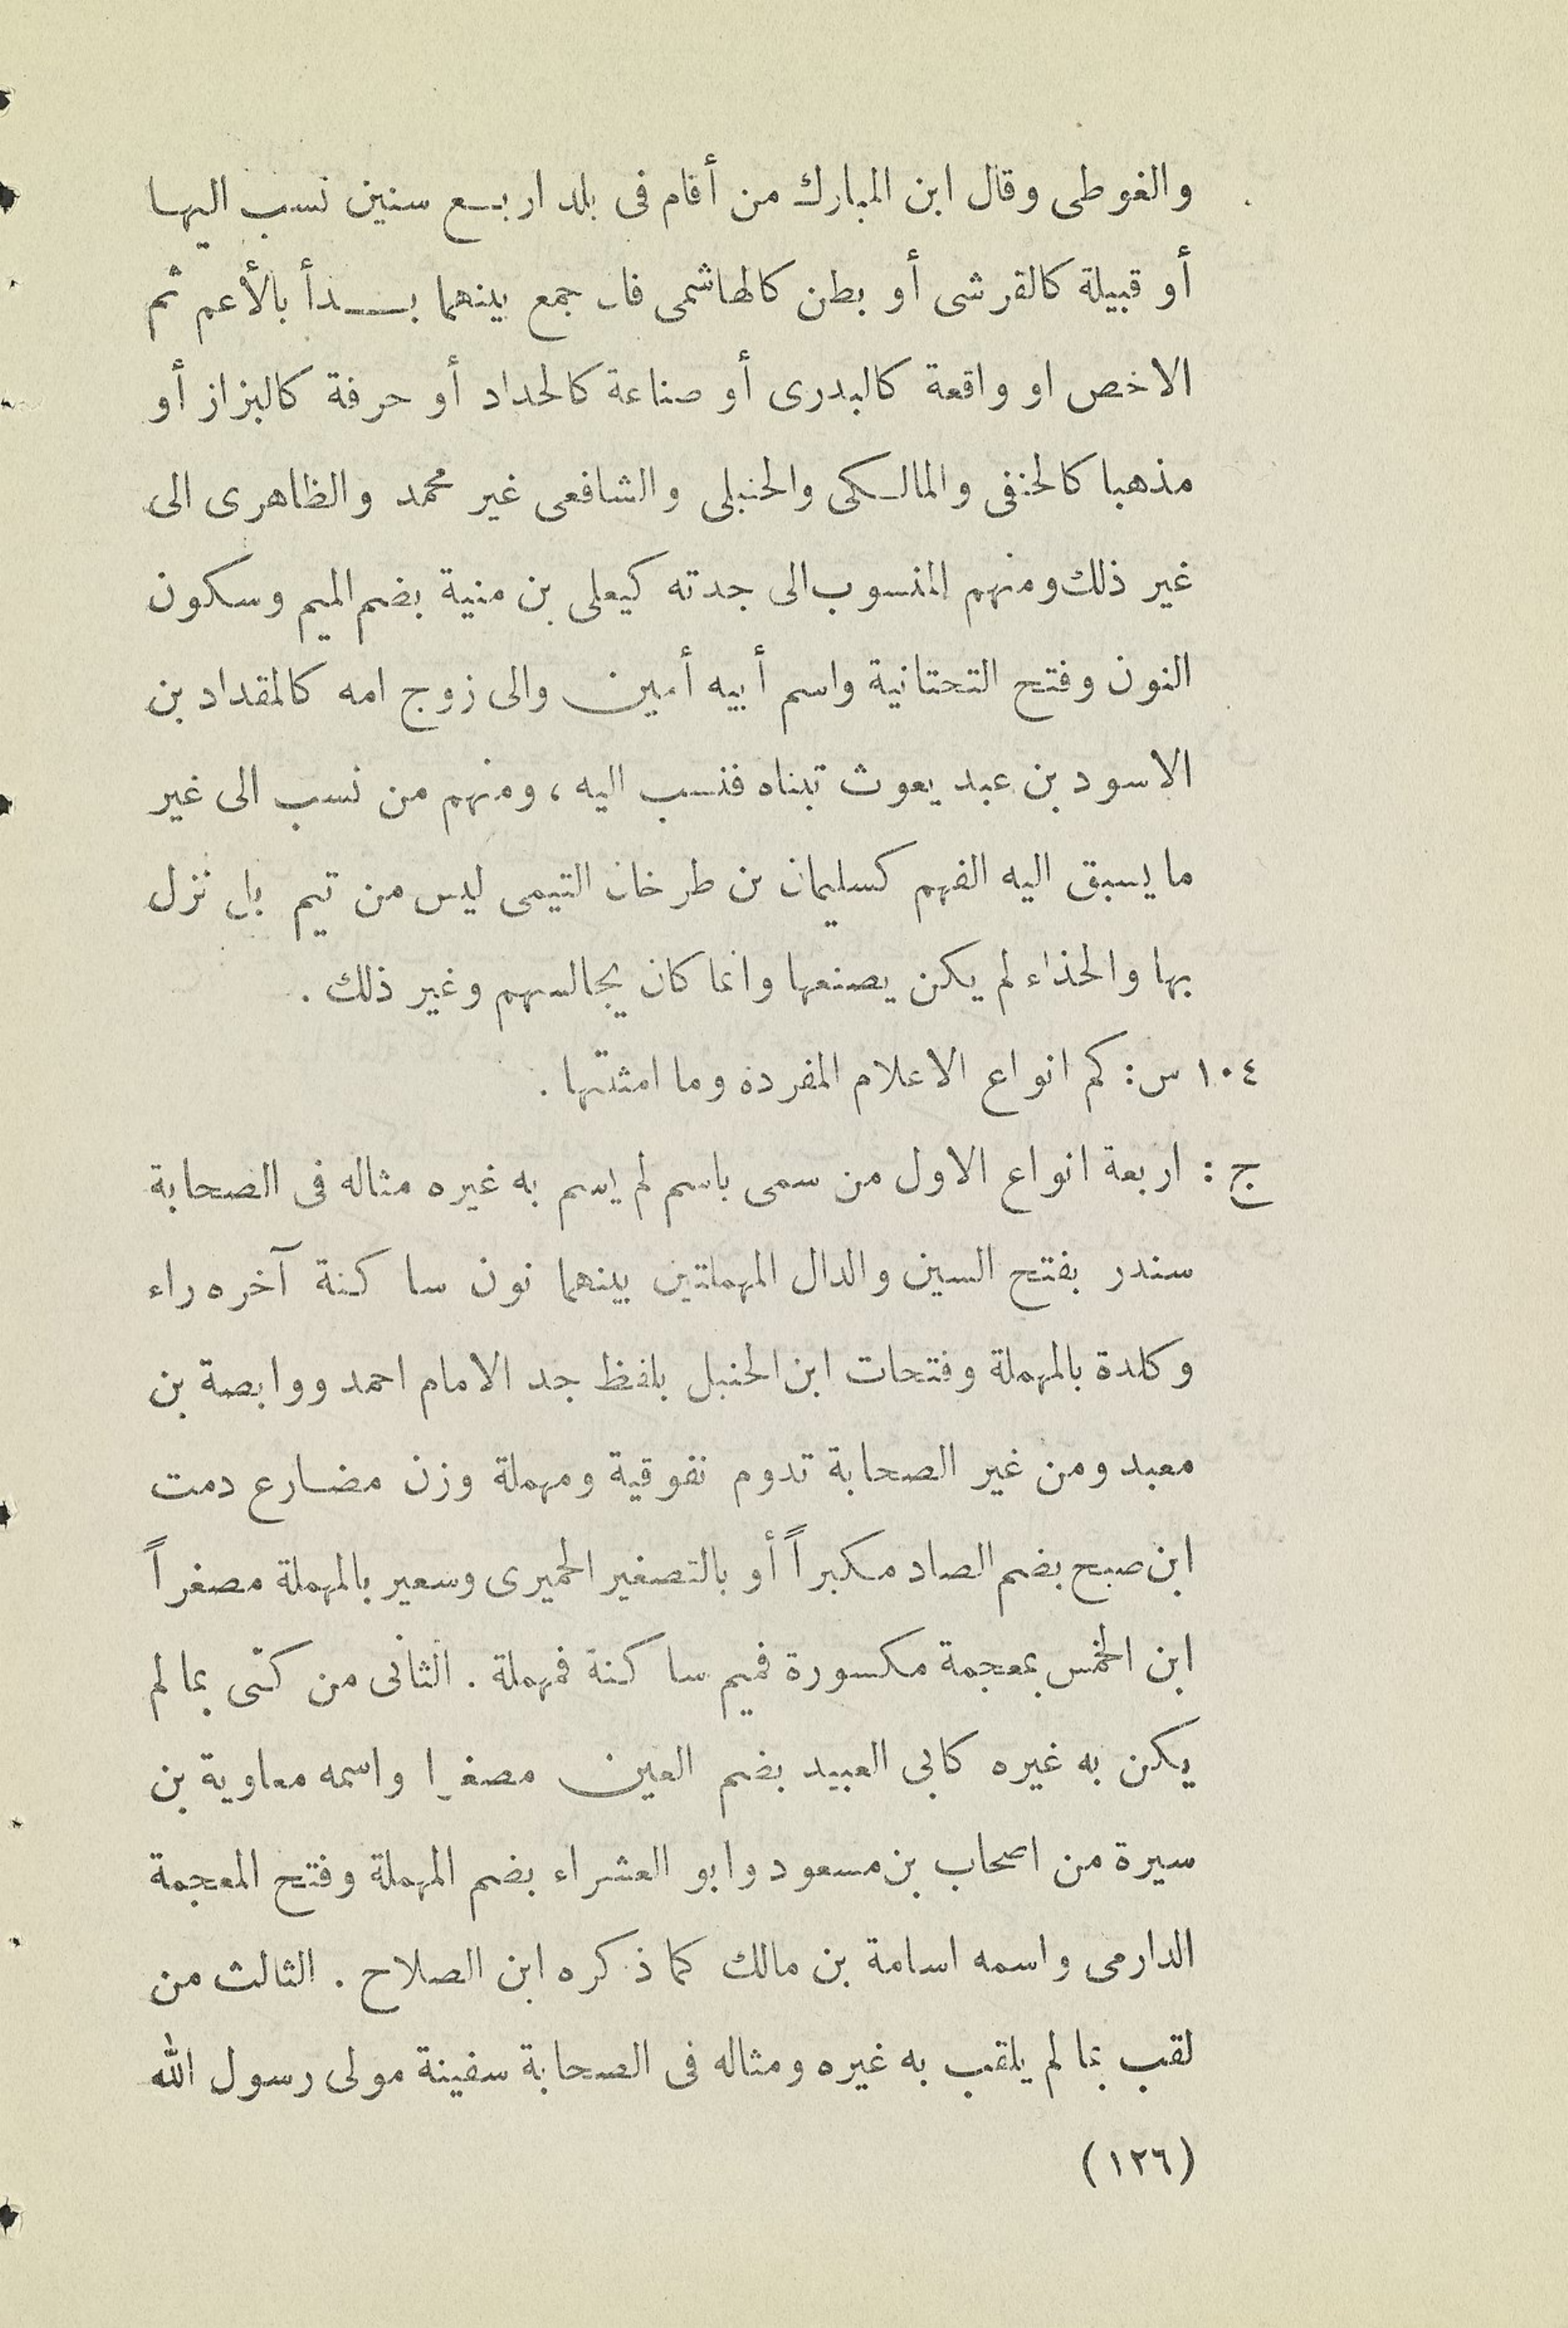 والغوطى وقال ابن المبارك من أقام فى بلد اربـع سنين نسب اليها
أو قبيلة كالقرشى أو بطن كالهاشمى فان جمع بينهما بـدأ بالأعم ثم
الاخص او واقعة كالبدرى أو صناعة كالحداد أو حرفة كالبزاز أو
مذهبا كالحنفى والمالكى والحنبلى والشافعى غير محمد والظاهرى الى
غير ذلك ومنهم المنسوب الى جدته كيعلى بن منية بضم الميم وسكون
النون وفتح التحتانية واسم أبيه أمين والى زوج امه كالمقداد بن
الاسود بن عبد يعوث تبناه فنسب اليه ، ومنهم من نسب الى غير
ما يسبق اليه الفهم كسليمان بن طرخان التيمى ليس من تيم بل نزل
بها والحذاء لم يكن يصنعها وانما كان يجالسهم وغير ذلك .
١٠٤ س : كم انواع الاعلام المفردة وما امثلتها .
ج : اربعة انواع الاول من سمى باسم لم يسم به غيره مثاله فى الصحابة
سندر بفتح السين والدال المهملتين بينهما نون ساكنة آخره راء
وكلدة بالمهملة وفتحات ابن الحنبل بلفظ جد الامام احمد ووابصة بن
معبد ومن غير الصحابة تدوم نفوقية ومهملة وزن مضارع دمت
ابن صبح بضم الصاد مكبراً أو بالتصغير الحميرى وسعير بالمهملة مصغراً
ابن الخمس بمعجمة مكسورة فميم ساكنة فمهملة . الثانى من كنى بما لم
يكن به غيره كابى العبيد بضم العين مصغرا واسمه معاوية بن
سيرة من اصحاب بن مسعود وابو العشراء بضم المهملة وفتح المعجمة
الدارمى واسمه اسامة بن مالك كما ذكره ابن الصلاح . الثالث من
لقب بما لم يلقب به غيره ومثاله فى الصحابة سفينة مولى رسول الله
(١٢٦)